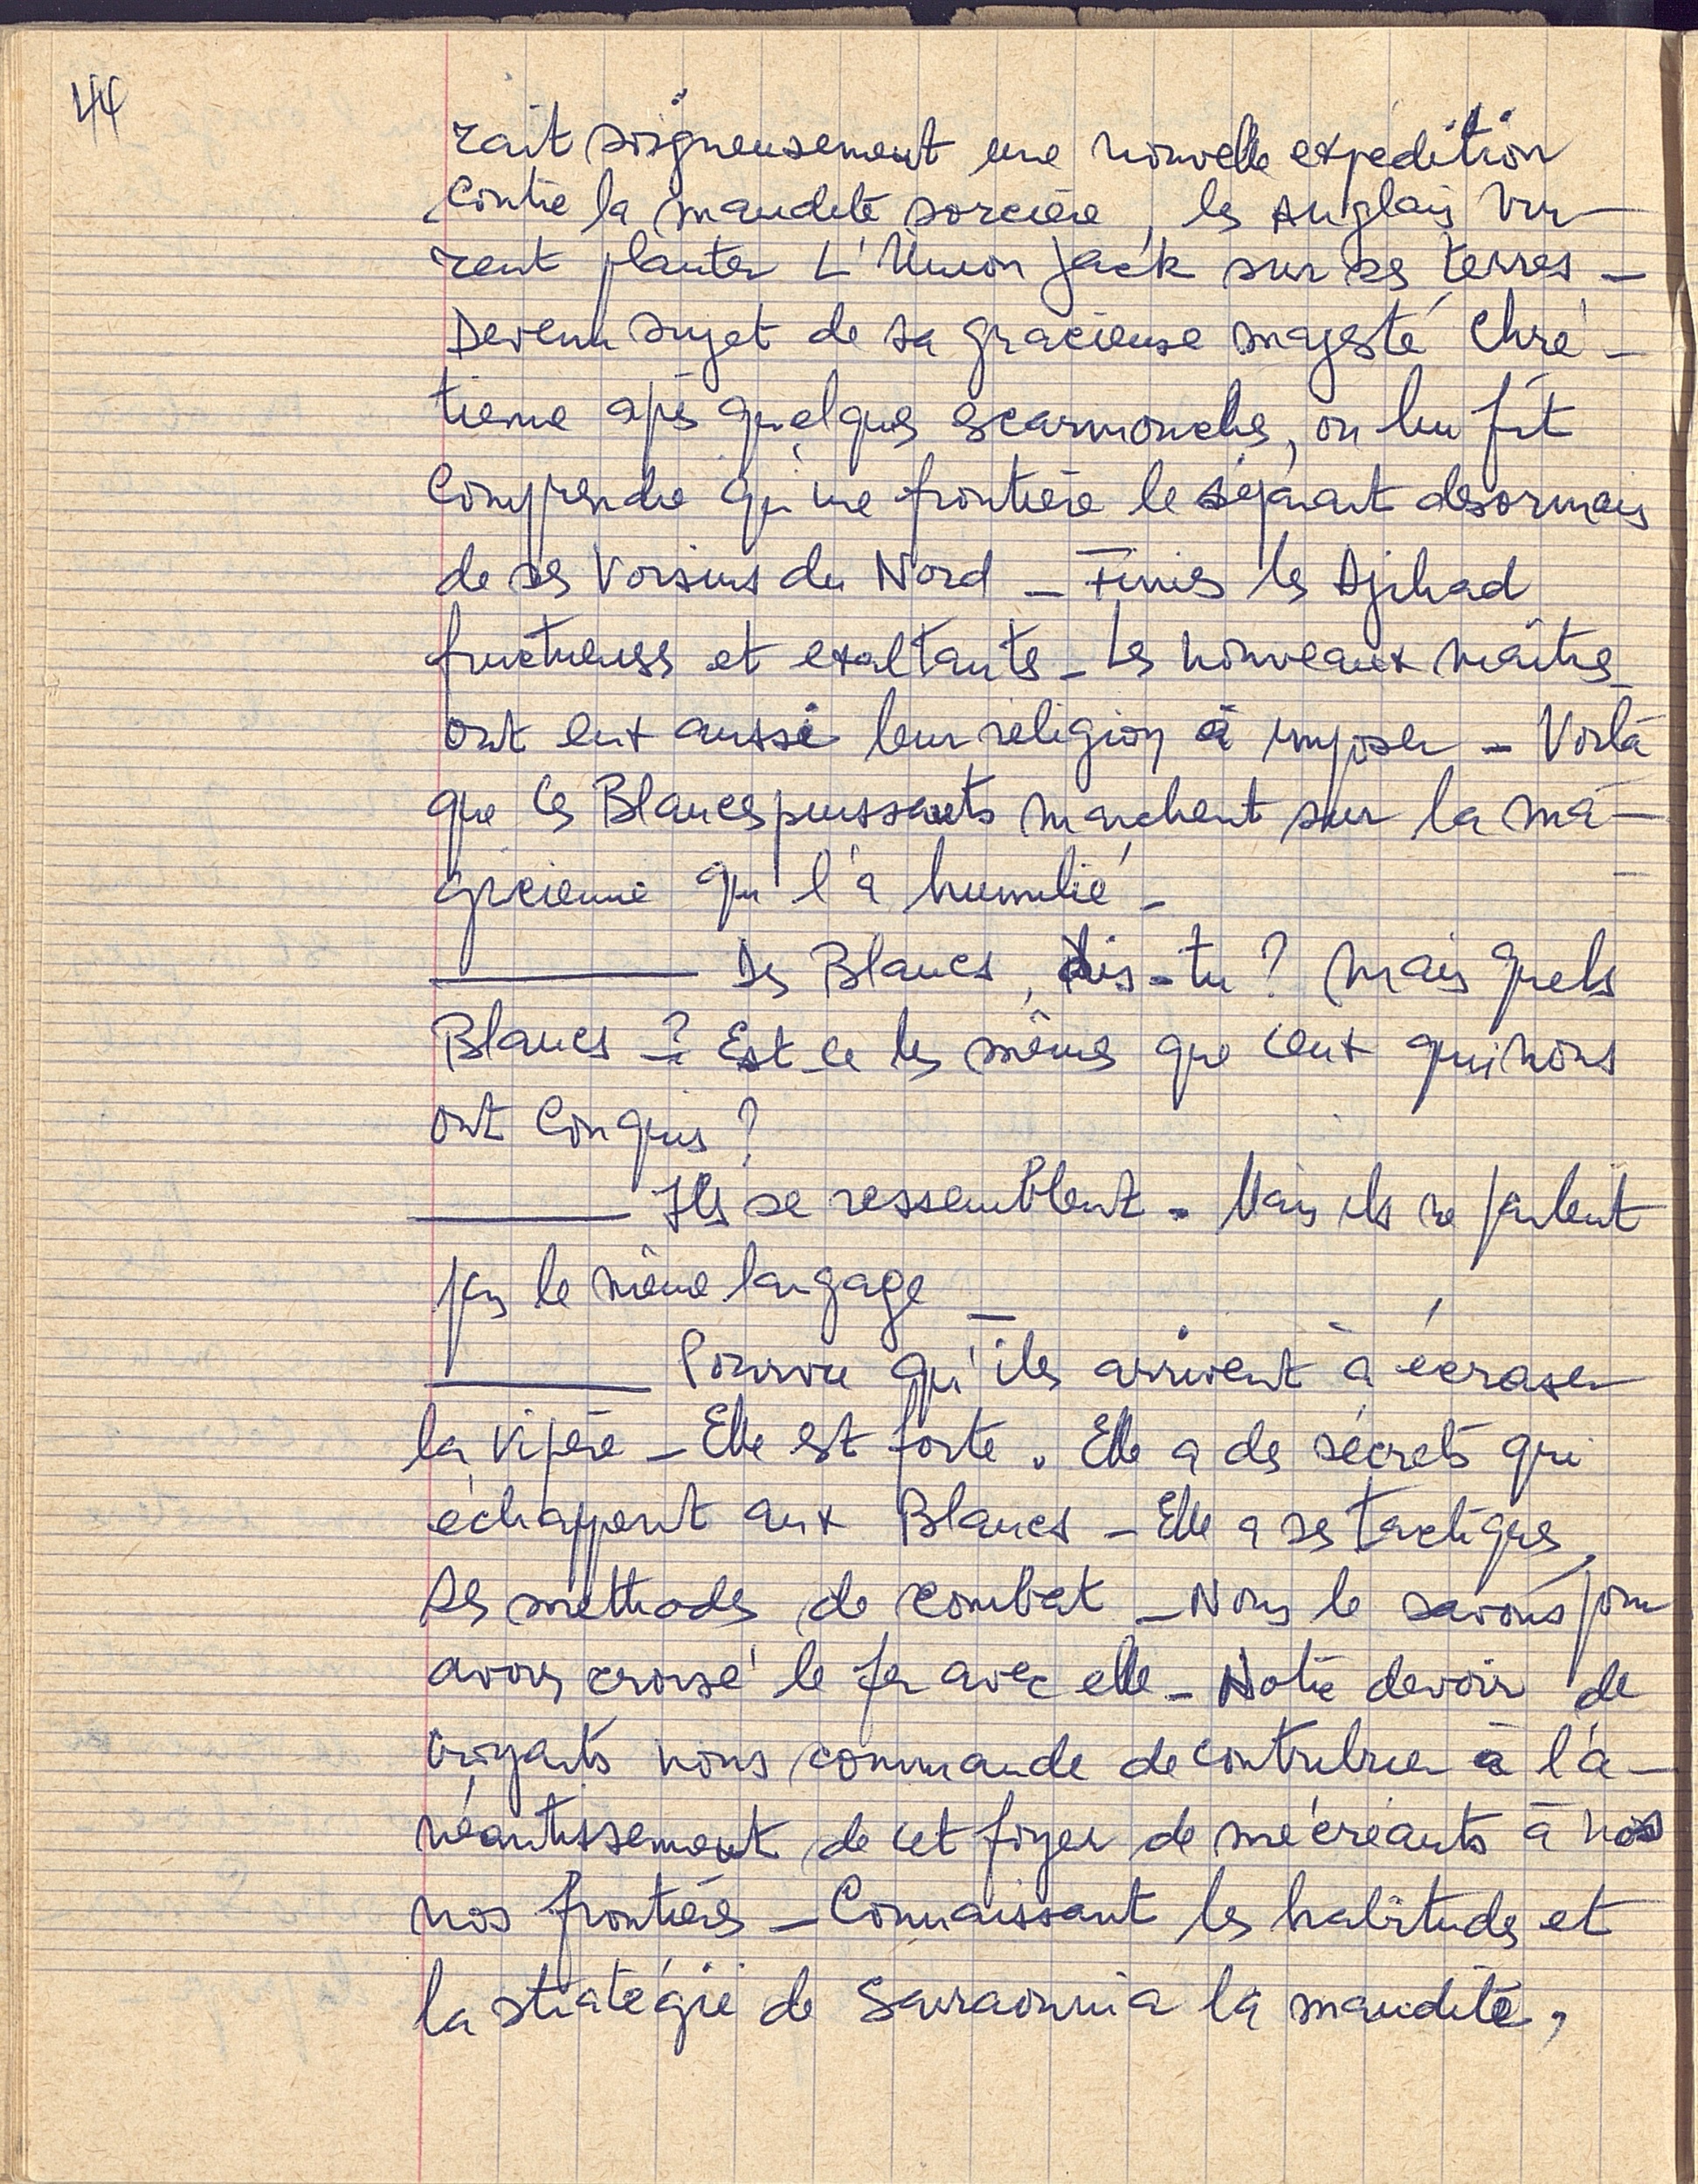 44
rait soigneusement une nouvelle expédition
contre la maudite sorcière, les Anglais vin-
rent planter L'Union Jack sur ses terres -
Devenu sujet de sa gracieuse majesté chré-
tienne après quelques escarmouches, on lui fit
comprendre qu'une frontière le séparait désormais
de ses voisins du Nord - Finies les Djihad
fructueuses et exaltantes - Les nouveaux maîtres
ont eux aussi leur religion à imposer - Voilà
que les Blancs puissants marchent sur la ma-
gicienne qui l'a humilié -
——— Des Blancs, dis-tu ? Mais quels
Blancs - ? Est-ce les mêmes que ceux qui nous
ont conquis ?
——— Ils se ressemblent. Mais ils ne parlent
pas le même langage -
——— Pourvu qu'ils arrivent à écraser
la vipère - Elle est forte. Elle a des secrets qui
échappent aux Blancs - Elle a ses tactiques,
ses méthodes de combat - Nous le savons pour
avoir croisé le fer avec elle - Notre devoir de
croyants nous commande de contribuer à l'a-
néantissement de cet foyer de mécréants à nos
nos frontières - Connaissant les habitudes et
la stratégie de Sarraounia la maudite,